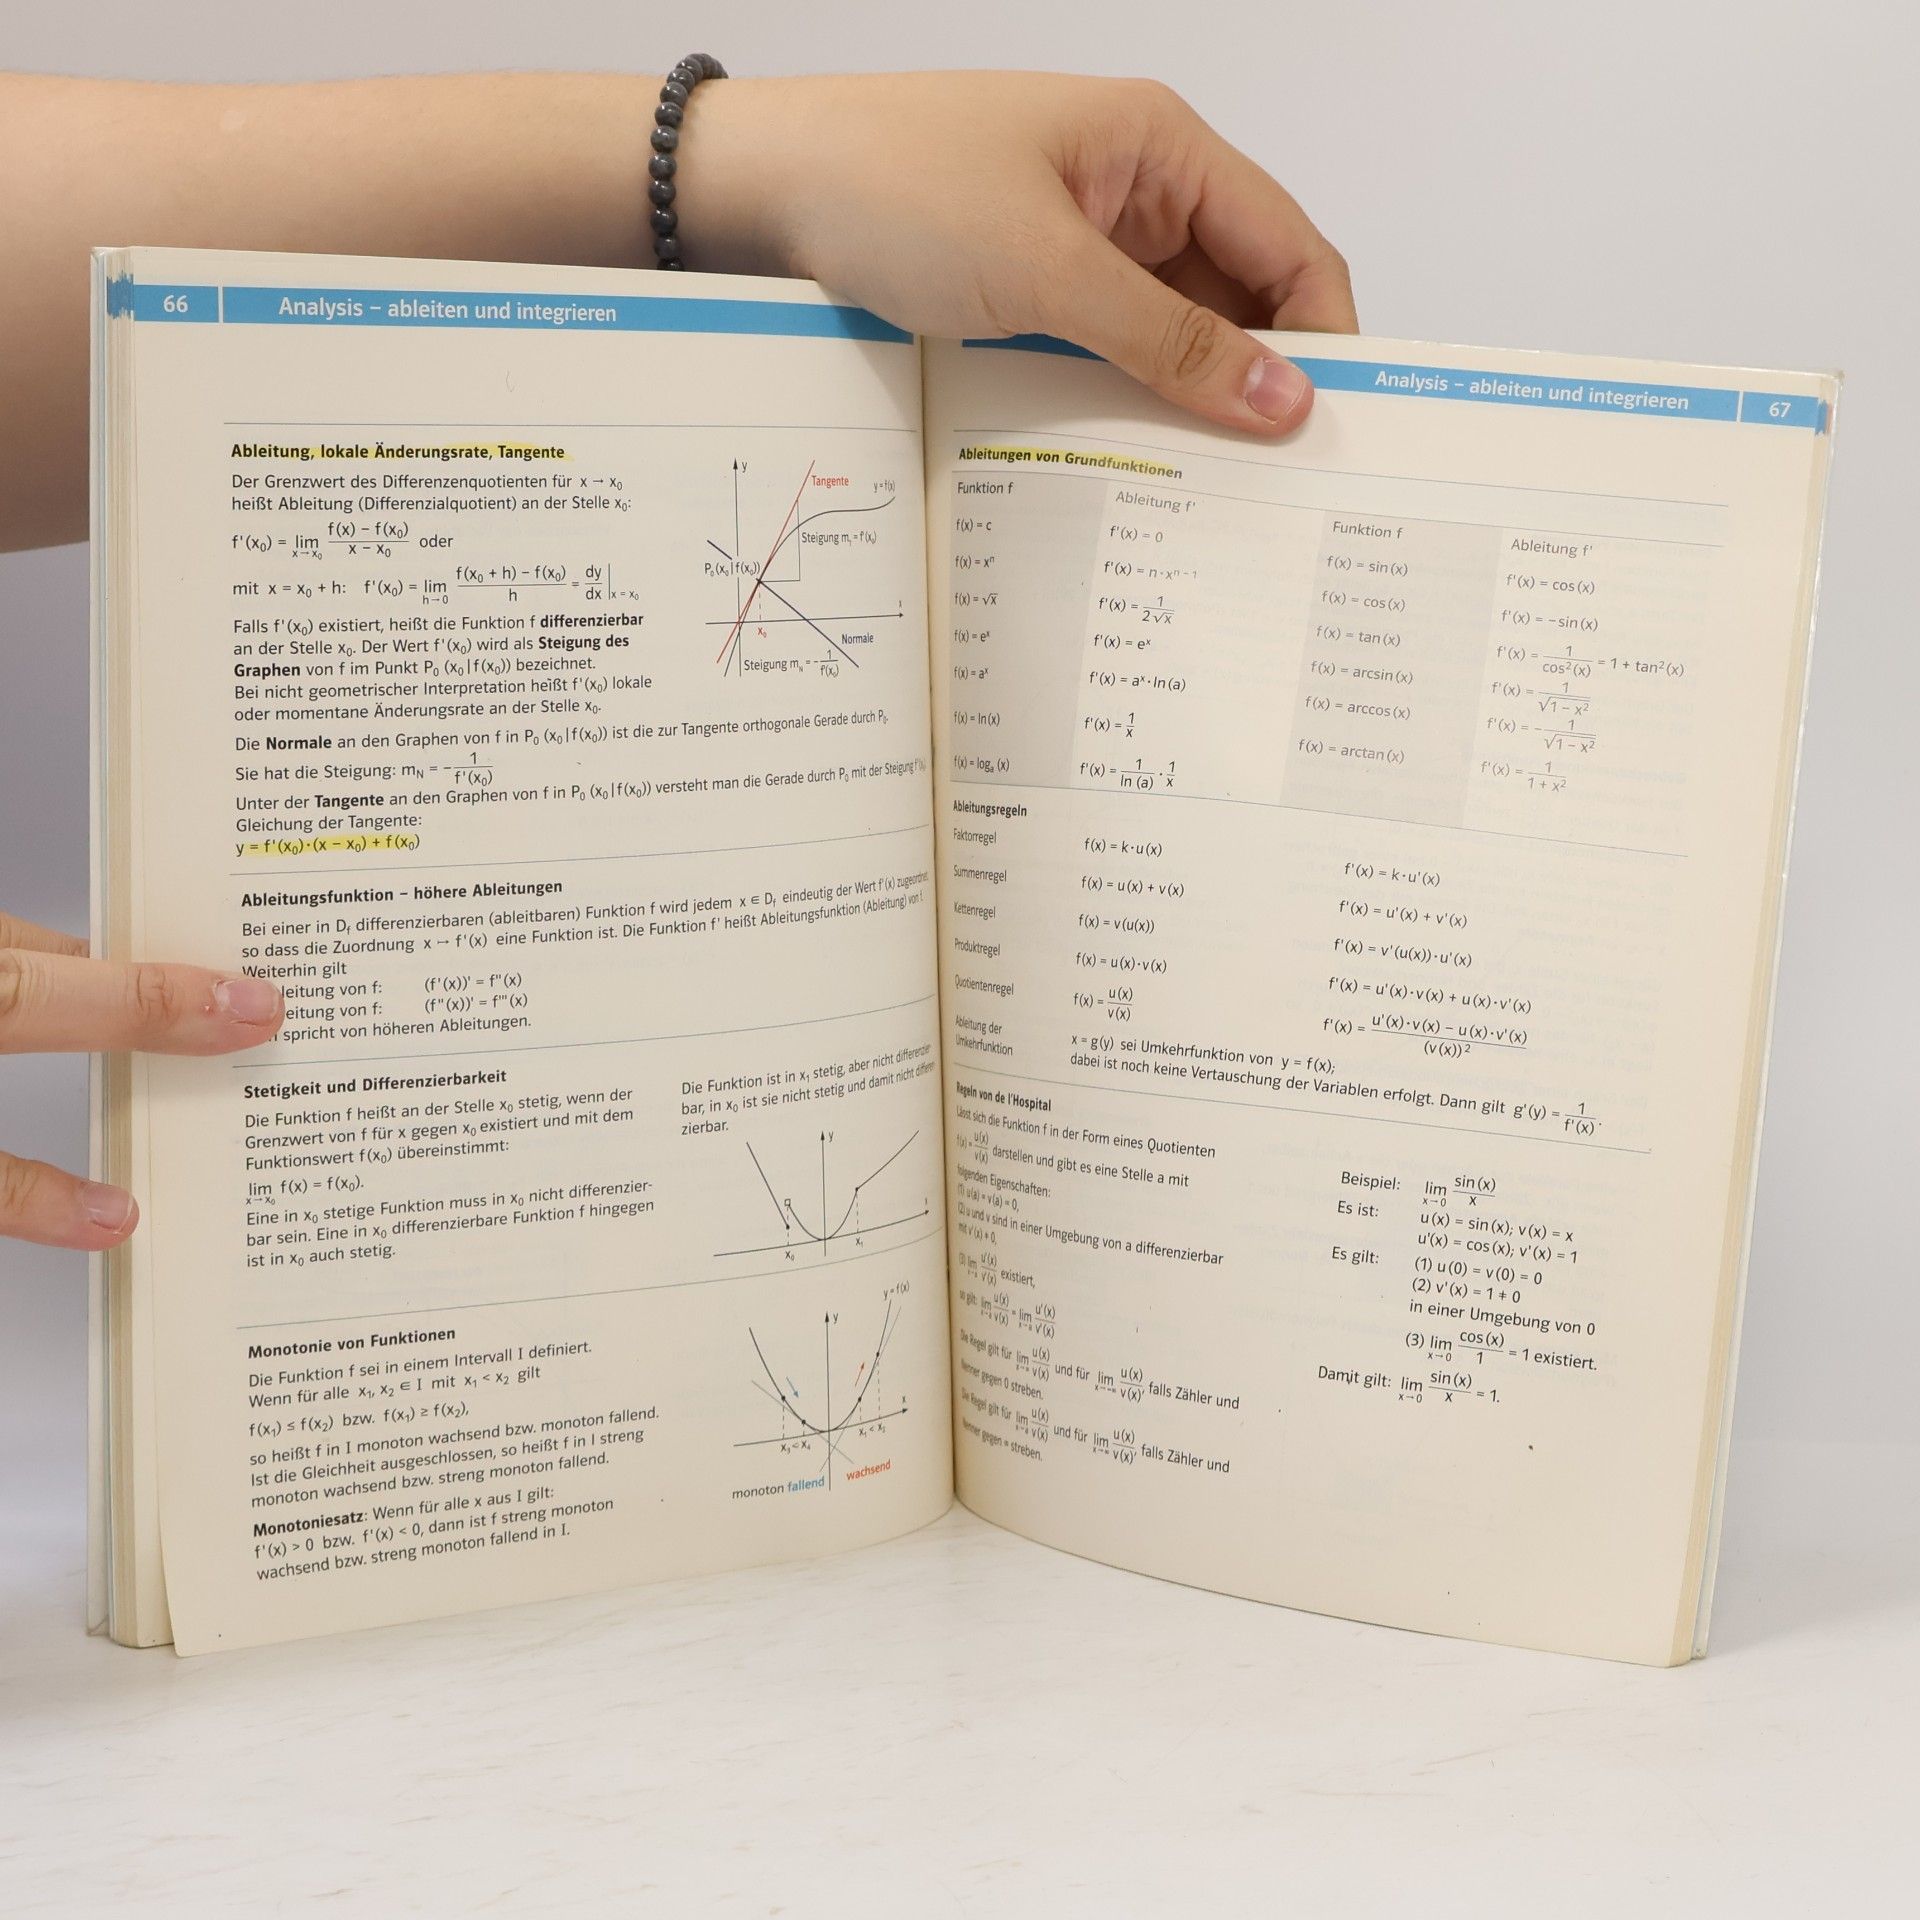 66 Analysis – ableiten und integrieren
Ableitung, lokale Änderungsrate, Tangente
Der Grenzwert des Differenzenquotienten für x → x₀
heißt Ableitung (Differenzialquotient) an der Stelle x₀:
f'(x₀) = lim x→x₀ (f(x) – f(x₀))/(x – x₀) oder
mit x = x₀ + h: f'(x₀) = lim h→0 (f(x₀ + h) – f(x₀))/h = dy/dx |x = x₀
Falls f'(x₀) existiert, heißt die Funktion f differenzierbar
an der Stelle x₀. Der Wert f'(x₀) wird als Steigung des
Graphen von f im Punkt P₀ (x₀|f(x₀)) bezeichnet.
Bei nicht geometrischer Interpretation heißt f'(x₀) lokale
oder momentane Änderungsrate an der Stelle x₀.
y
Tangente
y = f(x)
Steigung mₜ = f'(x₀)
P₀(x₀|f(x₀))
x
x₀
Normale
Steigung m_N = –1/f'(x₀)
Die Normale an den Graphen von f in P₀ (x₀|f(x₀)) ist die zur Tangente orthogonale Gerade durch P₀.
Sie hat die Steigung: m_N = –1/f'(x₀)
Unter der Tangente an den Graphen von f in P₀ (x₀|f(x₀)) versteht man die Gerade durch P₀ mit der Steigung
Gleichung der Tangente:
y = f'(x₀)·(x – x₀) + f(x₀)
Ableitungsfunktion – höhere Ableitungen
Bei einer in D_f differenzierbaren (ableitbaren) Funktion f wird jedem x ∈ D_f eindeutig der Wert f'(x) zugeordnet,
so dass die Zuordnung x → f'(x) eine Funktion ist. Die Funktion f' heißt Ableitungsfunktion (Ableitung) von f.
Weiterhin gilt
leitung von f: (f'(x))' = f''(x)
eitung von f: (f''(x))' = f'''(x)
spricht von höheren Ableitungen.
Stetigkeit und Differenzierbarkeit
Die Funktion f heißt an der Stelle x₀ stetig, wenn der
Grenzwert von f für x gegen x₀ existiert und mit dem
Funktionswert f(x₀) übereinstimmt:
lim x→x₀ f(x) = f(x₀).
Eine in x₀ stetige Funktion muss in x₀ nicht differenzier-
bar sein. Eine in x₀ differenzierbare Funktion f hingegen
ist in x₀ auch stetig.
Die Funktion ist in x₁ stetig, aber nicht differenzier-
bar, in x₀ ist sie nicht stetig und damit nicht differen-
zierbar.
y
x
x₀ x₁
Monotonie von Funktionen
Die Funktion f sei in einem Intervall I definiert.
Wenn für alle x₁, x₂ ∈ I mit x₁ < x₂ gilt
f(x₁) ≤ f(x₂) bzw. f(x₁) ≥ f(x₂),
so heißt f in I monoton wachsend bzw. monoton fallend.
Ist die Gleichheit ausgeschlossen, so heißt f in I streng
monoton wachsend bzw. streng monoton fallend.
Monotoniesatz: Wenn für alle x aus I gilt:
f'(x) > 0 bzw. f'(x) < 0, dann ist f streng monoton
wachsend bzw. streng monoton fallend in I.
y = f(x)
y
x
x₃ < x₄ x₁ < x₂
monoton fallend wachsend
Analysis – ableiten und integrieren 67
Ableitungen von Grundfunktionen
Funktion f Ableitung f' Funktion f Ableitung f'
f(x) = c f'(x) = 0 f(x) = sin(x) f'(x) = cos(x)
f(x) = xⁿ f'(x) = n·xⁿ⁻¹ f(x) = cos(x) f'(x) = –sin(x)
f(x) = √x f'(x) = 1/(2√x) f(x) = tan(x) f'(x) = 1/cos²(x) = 1 + tan²(x)
f(x) = eˣ f'(x) = eˣ f(x) = arcsin(x) f'(x) = 1/√(1 – x²)
f(x) = aˣ f'(x) = aˣ·ln(a) f(x) = arccos(x) f'(x) = –1/√(1 – x²)
f(x) = ln(x) f'(x) = 1/x f(x) = arctan(x) f'(x) = 1/(1 + x²)
f(x) = logₐ(x) f'(x) = 1/ln(a) · 1/x
Ableitungsregeln
Faktorregel f(x) = k·u(x) f'(x) = k·u'(x)
Summenregel f(x) = u(x) + v(x) f'(x) = u'(x) + v'(x)
Kettenregel f(x) = v(u(x)) f'(x) = v'(u(x))·u'(x)
Produktregel f(x) = u(x)·v(x) f'(x) = u'(x)·v(x) + u(x)·v'(x)
Quotientenregel f(x) = u(x)/v(x) f'(x) = (u'(x)·v(x) – u(x)·v'(x))/(v(x))²
Ableitung der
Umkehrfunktion
x = g(y) sei Umkehrfunktion von y = f(x);
dabei ist noch keine Vertauschung der Variablen erfolgt. Dann gilt g'(y) = 1/f'(x).
Regeln von de l'Hospital
Lässt sich die Funktion f in der Form eines Quotienten
f(x) = u(x)/v(x) darstellen und gibt es eine Stelle a mit
folgenden Eigenschaften:
(1) u(a) = v(a) = 0,
(2) u und v sind in einer Umgebung von a differenzierbar
mit v'(x) ≠ 0,
(3) lim x→a u'(x)/v'(x) existiert,
so gilt: lim x→a u(x)/v(x) = lim x→a u'(x)/v'(x)
Die Regel gilt für lim u(x)/v(x) und für lim x→–∞ u(x)/v(x), falls Zähler und
Nenner gegen 0 streben.
Die Regel gilt für lim u(x)/v(x) und für lim u(x)/v(x), falls Zähler und
Nenner gegen ∞ streben.
Beispiel: lim x→0 sin(x)/x
Es ist: u(x) = sin(x); v(x) = x
u'(x) = cos(x); v'(x) = 1
Es gilt: (1) u(0) = v(0) = 0
(2) v'(x) = 1 ≠ 0
in einer Umgebung von 0
(3) lim x→0 cos(x)/1 = 1 existiert.
Damit gilt: lim x→0 sin(x)/x = 1.